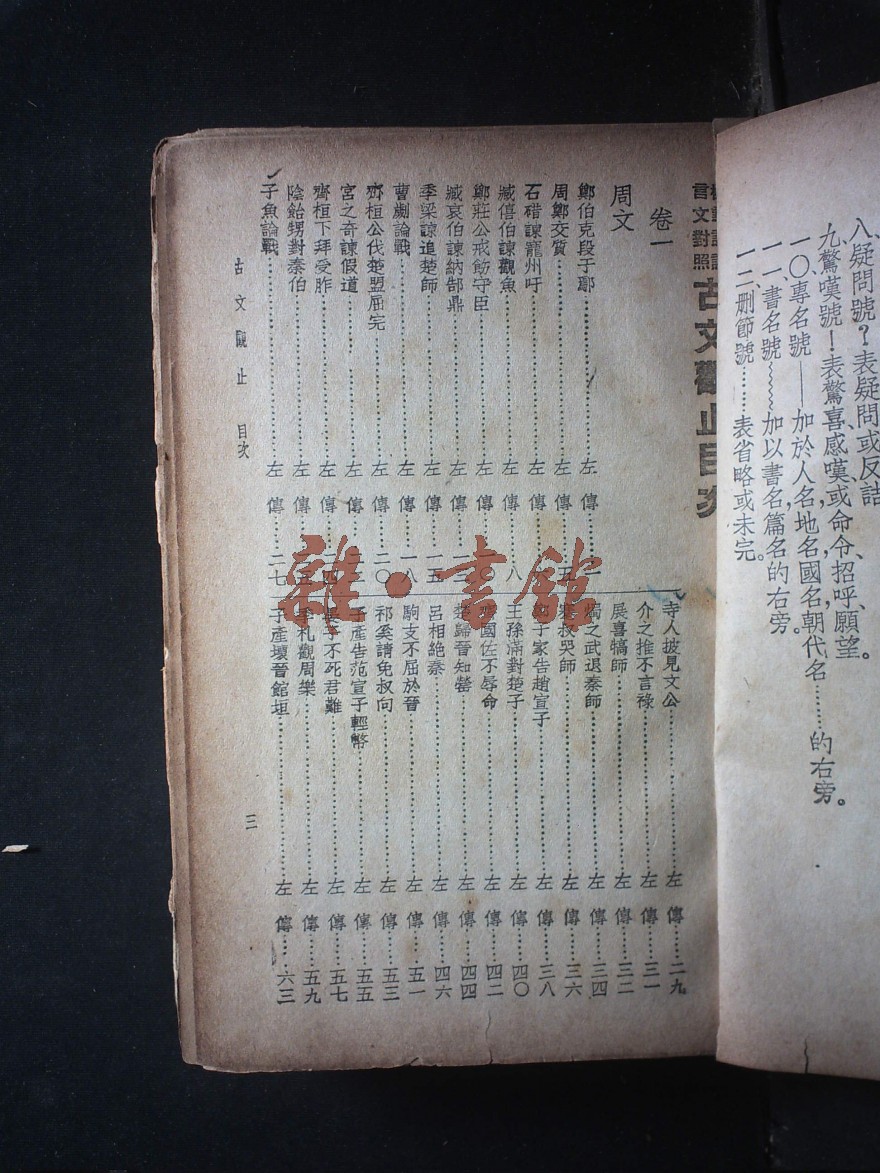 八、疑問號？表疑問或反詰
九、驚嘆號！表驚喜、感嘆、或命令、招呼、願望。
一〇、專名號——加於人名地名國名朝代名……的右旁。
一一、書名號﹏﹏加以書名篇名的右旁。
一二、刪節號……表省略或未完。
言文對照
古文觀止目次
卷一
周文
鄭伯克段于鄢……左傳……一
周鄭交質……左傳……五
石碏諫寵州吁……左傳
臧僖伯諫觀魚……左傳……八
鄭莊公戒飭守臣……左傳
臧哀伯諫納郜鼎……左傳
季梁諫追楚師……左傳……一五
曹劌論戰……左傳……一八
齊桓公伐楚盟屈完……左傳……二〇
宮之奇諫假道……左傳
齊桓下拜受胙……左傳
陰飴甥對秦伯……左傳
子魚論戰……左傳……二七
寺人披見文公……左傳……二九
介之推不言祿……左傳……三一
展喜犒師……左傳……三二
燭之武退秦師……左傳……三四
蹇叔哭師……左傳……三六
子家告趙宣子……左傳……三八
王孫滿對楚子……左傳……四〇
國佐不辱命……左傳……四二
楚歸晉知罃……左傳……四四
呂相絕秦……左傳……四六
駒支不屈於晉……左傳……五一
祁奚請免叔向……左傳……五三
子產告范宣子輕幣……左傳……五五
不死君難……左傳……五七
季札觀周樂……左傳……五九
子產壞晉館垣……左傳……六三
古文觀止　目次
三
雜·書館